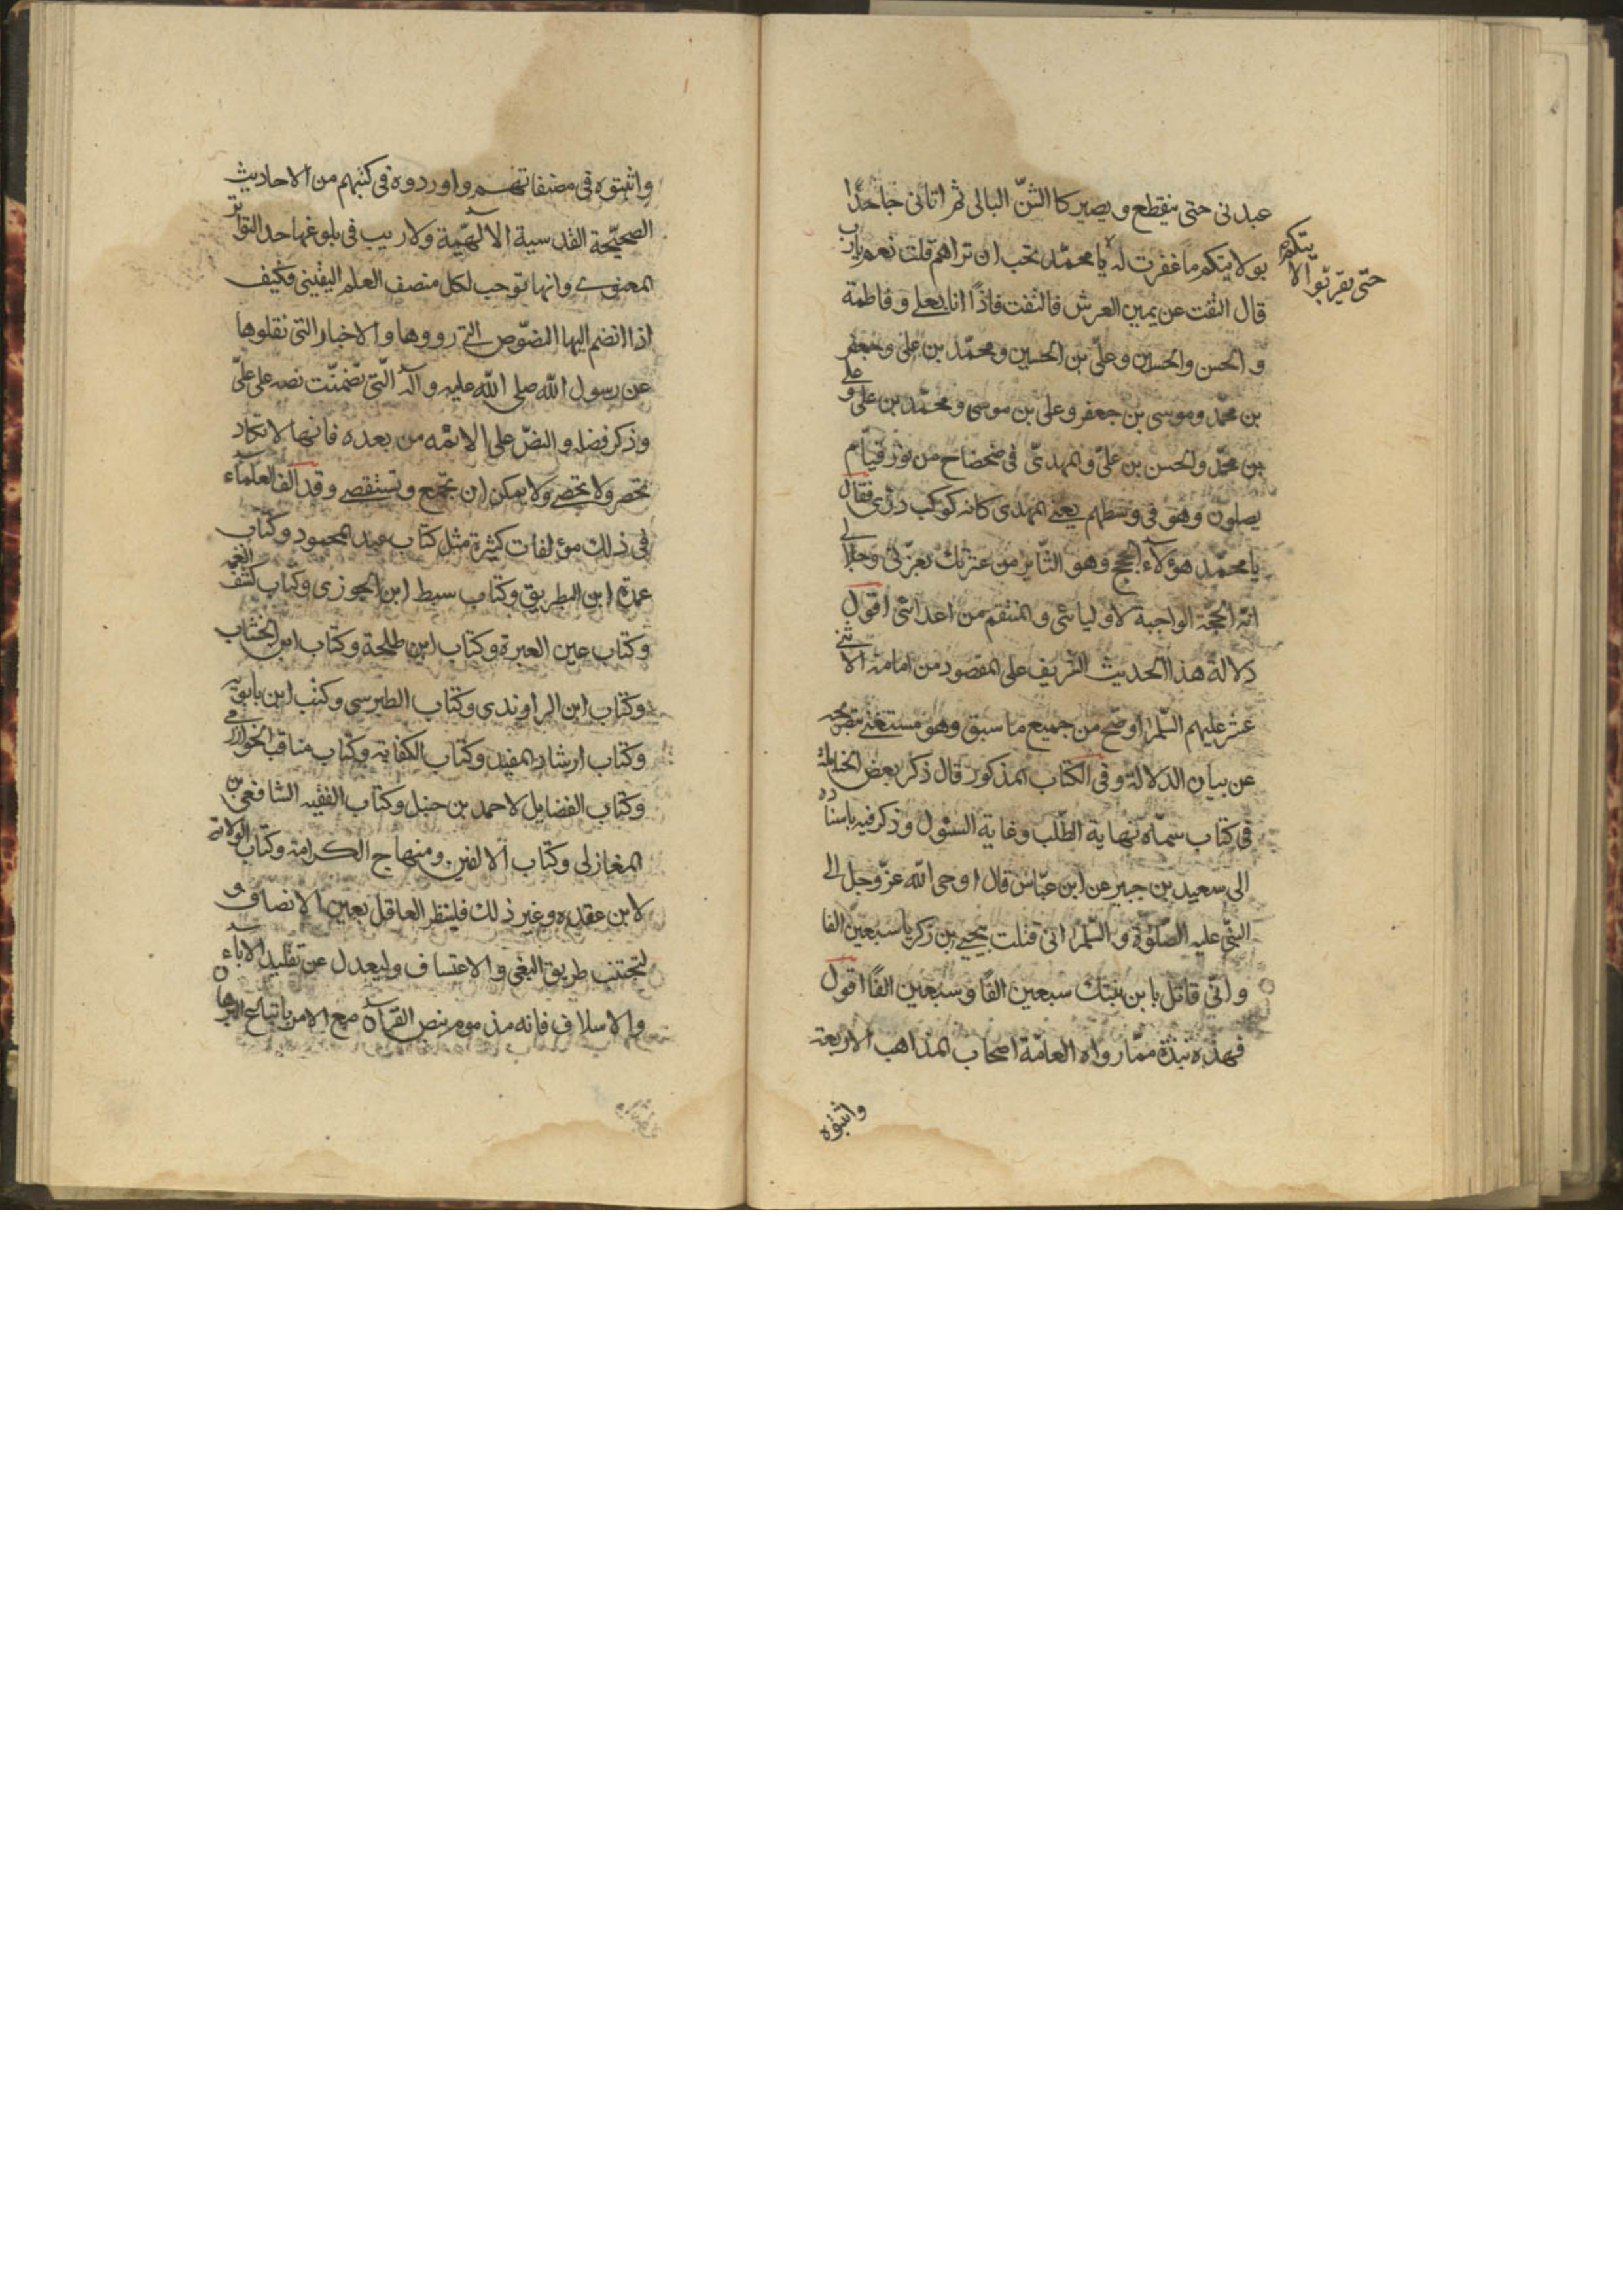 عبدنى حتى ينقطع و يصير كا الشنّ البالى ثم اتانى جاحدًا
بولايتكم ما غفرت له يا محمّد تحب ان تراهم قلت نعم يارب
حتّى يقرّبوّ الا
يتكم
قال التفت عن يمين العرش فالتفت فاذًا انا بعلى و فاطمة
و الحسن والحسين و علىّ بن الحسين ومحمّد بن على وجعفر
بن محمّد وموسى بن جعفر وعلى بن موسى ومحمّد بن على و على
بن محمّد والحسن بن علىّ والمهدىّ فى ضحضاح من نور قيام
يصلون وهو فى وسطهم يعنى المهدى كانه كوكب درّى فقال
يا محمّد هؤلاء الحجج وهو الثّاير من عترتك بعزّتى وجلالى
انّه الحجّة الواجبة لاوليائى والمنتقم من اعدائى اقول
دلالة هذا الحديث الشريف على المقصود من امامة الاثنى
عشر عليهم السّلم اوضح من جميع ما سبق وهو مستغنى بتصريحه
عن بيان الدلالة وفى الكتاب المذكور قال ذكر بعض الحنابلة
فى كتاب سمّاه نهاية الطّلب وغاية السئول وذكر فيه باسناده
الى سعيد بن جبير عن ابن عبّاس قال اوحى الله عزّ وجل الى
النبّى عليه الصّلوة و السّلم انى قتلت بيحيى بن زكريا سبعين الفا
و انّى قاتل بابن بنتك سبعين الفًا وسبعين الفًا اقول
فهذه نبذة ممّا رواه العامّة اصحاب المذاهب الاربعة
واثبتوه
واثبتوه فى مصنفاتهم واوردوه فى كتبهم من الاحاديث
الصحيّحة القدسية الالهّية ولا ريب فى بلوغها حد التواتر
المعنوى وانها توجب لكل منصف العلم اليقينى فكيف
اذا انضم اليها النصّوص التى رووها والاخبار التى نقلوها
عن رسول الله صلى الله عليه وآله الّتى تضمنّت نصه على علىّ
وذكر فضله والنصّ على الائمه من بعده فانها لا تكاد
تحصر ولا تحصى ولا يمكن ان تجمع وتستقصى وقد الف العلماء
فى ذلك مؤلفات كثيرة مثل كتاب عبد المحمود وكتاب
عمدة ابن البطريق وكتاب سبط ابن الجوزى وكتاب كشف الغمه
وكتاب عين العبرة وكتاب ابن طلحة وكتاب ابن الخشاب
وكتاب ابن الراوندى وكتاب الطبرسى وكتب ابن بابويه
وكتاب ارشاد المفيد وكتاب الكفاية وكتاب مناقب الخوارزمى
وكتاب الفضايل لاحمد بن حنبل وكتاب الفقيه الشافعى بن
المغازلى وكتاب الالفين ومنهاج الكرامة وكتاب الولاية
لابن عقده وغير ذلك فلينظر العاقل بعين الانصاف و
لتجتنب طريق البغى والاعتساف وليعدل عن تقليد الاباء
والاسلاف فانه مذموم بنص القرآن مع الامر باتباع البرهان